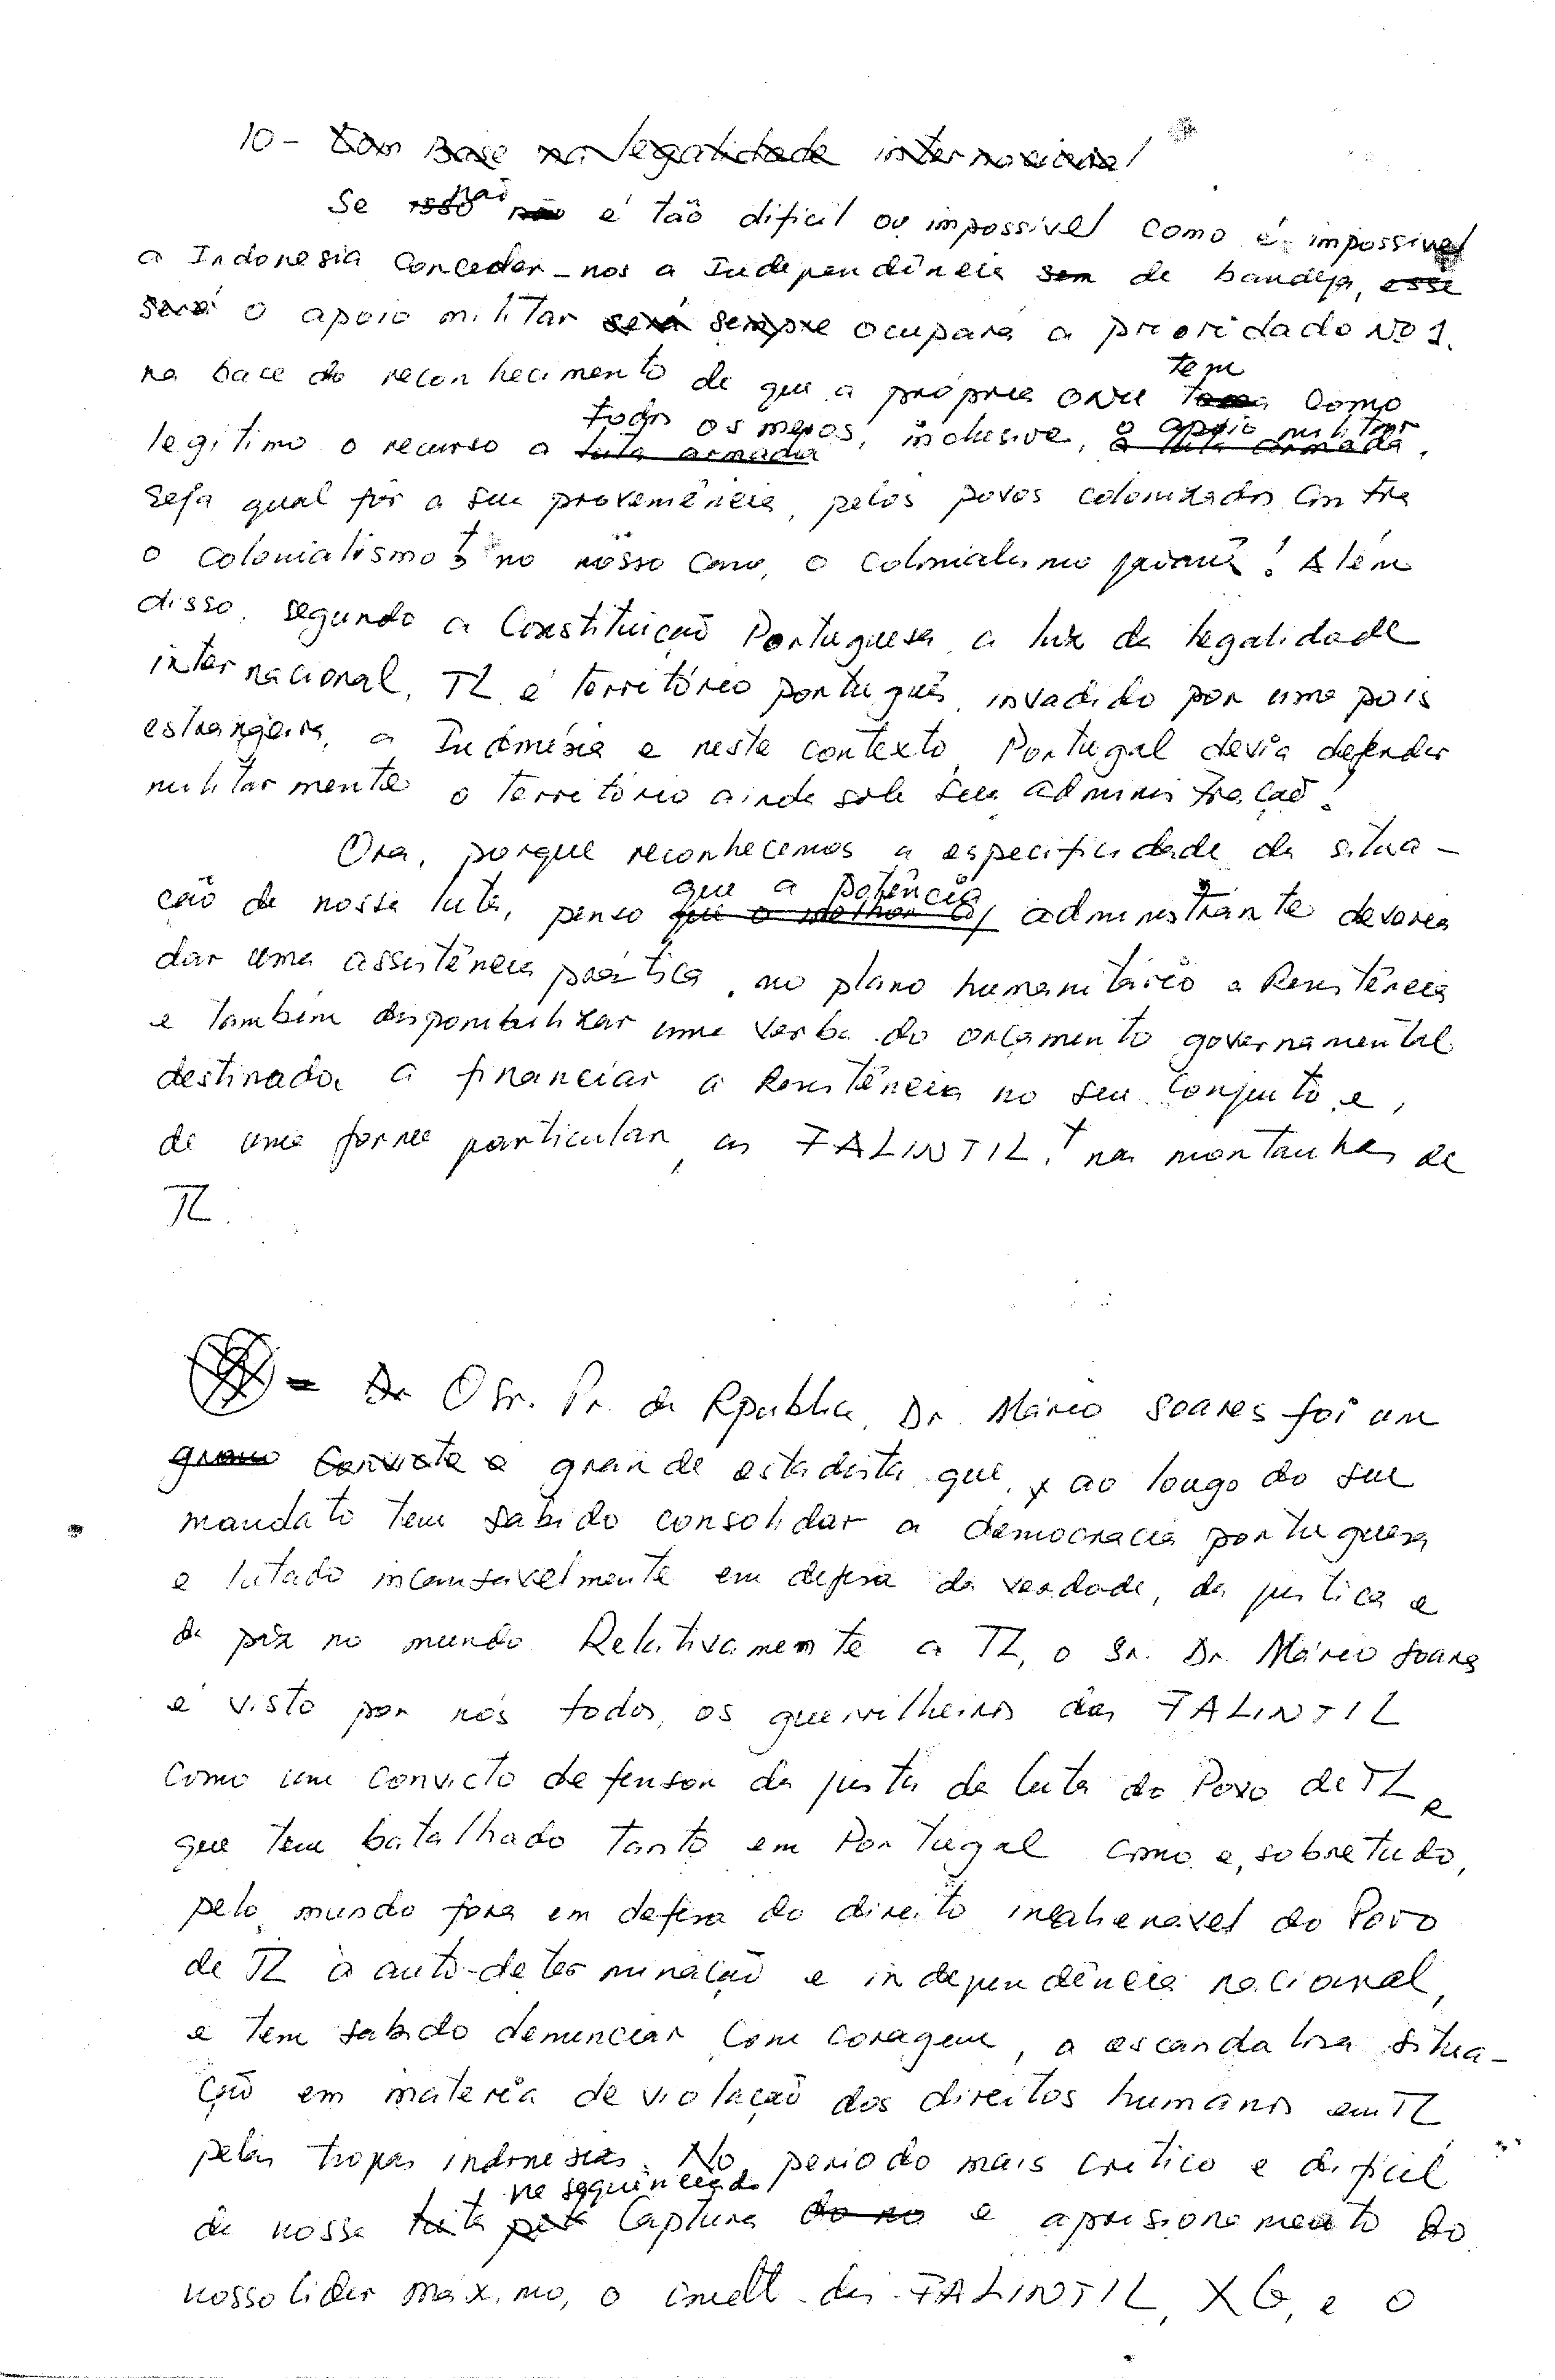 10 - Com Base na legalidade internacional
Se isso não não é tão dificil ou impossível como é impossivel
a Indonesia conceder-nos a Independência sem de bandeja, esse
será o apoio militar será sempre ocupará a prioridade Nº 1.
na base do reconhecimento de que a própria ONU tem como
legitimo o recurso a luta armada todos os meios, inclusive, a luta armada o apoio militar,
seja qual fôr a sua proveniência, pelos povos colonizados contra
o colonialismo no nosso caso, o colonialismo javanês! Além
disso, segundo a Constituição Portuguesa a luz da legalidade
internacional, TL é território português invadido por uma pais
estrangeira, a Indonésia e neste contexto, Portugal devia defender
militarmente o território ainda sob sua administração!
Ora, porque reconhecemos a especificidade da situa-
ção de nossa luta, penso que a potência administrante deveria
dar uma assistência prática, no plano humanitário a Resistência
e também disponibilizar uma verba do orçamento governamental
destinada a financiar a Resistência no seu conjunto e,
de uma forma particular, as FALINTIL, nas montanhas de
TL.
- Dr O Sr. Pr. da Républica, Dr. Mário Soares foi um
grande estadista que, ao longo do seu
mandato tem sabido consolidar a democracia portuguesa
e lutado incansavelmente em defesa da verdade, da justiça e
da paz no mundo. Relativamente a TL, o Sr. Dr. Mário Soares
é visto por nós todos, os guerrilheiros das FALINTIL
como um convicto defensor da justa da luta do Povo de TL e
que tem batalhado tanto em Portugal como e, sobretudo,
pelo mundo fora em defesa do direito inalienável do Povo
de TL à auto-determinação e independência nacional,
e tem sabido denunciar com coragem, a escandalosa situa-
ção em materia de violação dos direitos humanos em TL
pelas tropas indonesias. No periodo mais critico e dificil
da nossa luta pela na sequência da captura e aprisionamento do
nosso lider máximo, o cmdt. das FALINTIL, XG, e o